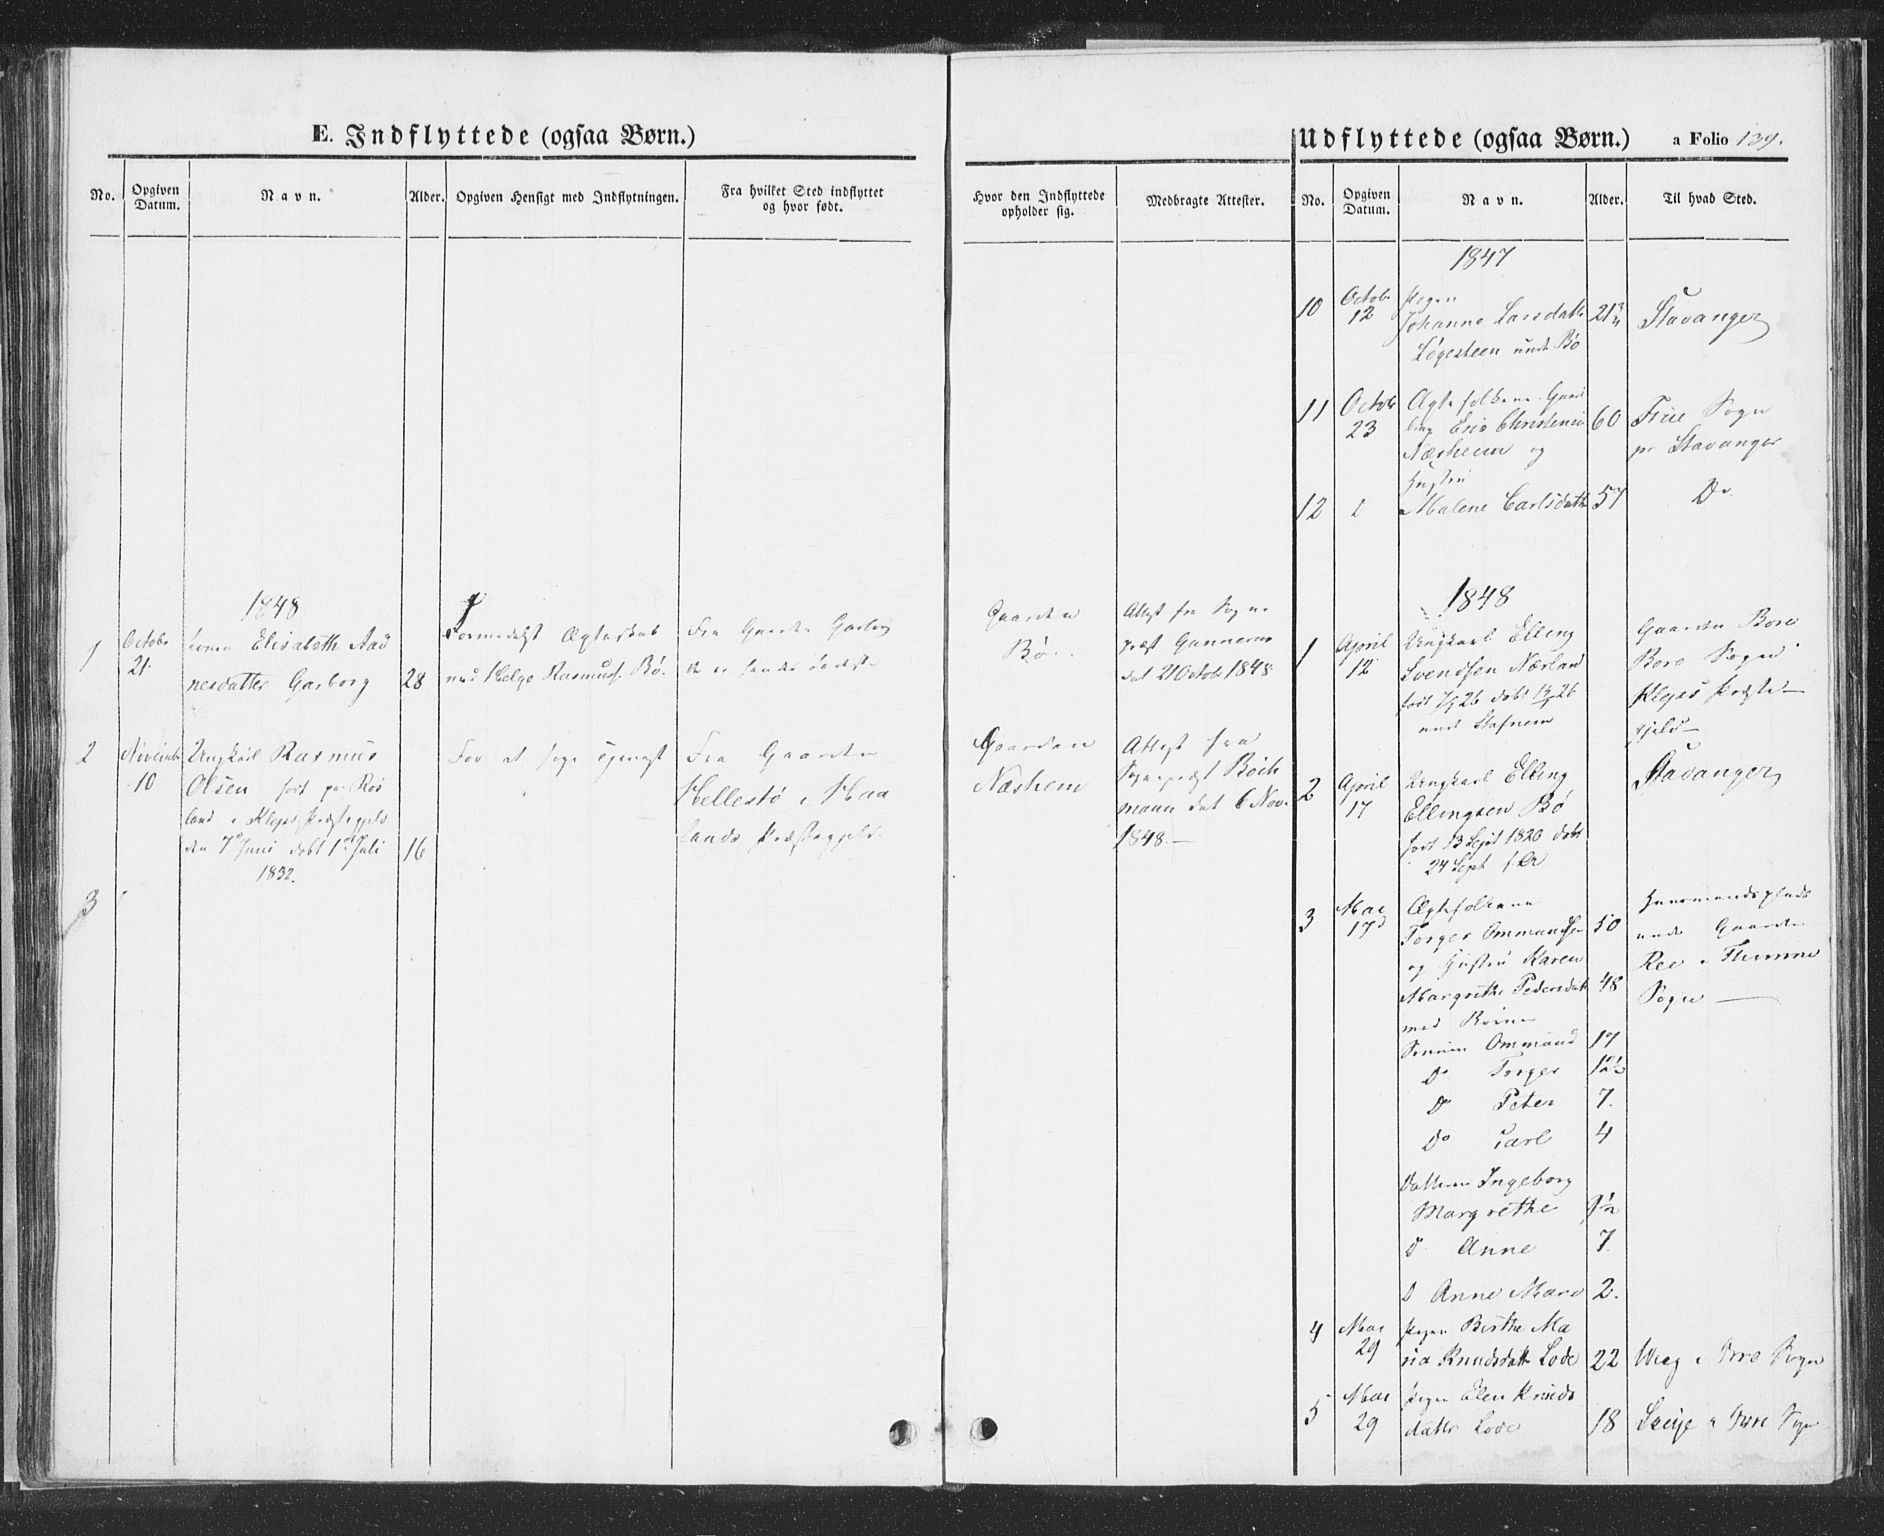 E. Indflyttede (ogsaa Børn.)
No.
Opgiven Datum.
Navn.
Alder.
Opgiven Hensigt med Indflytningen.
Fra hvilket Sted indflyttet
og hvor født.
Hvor den Indflyttede
opholder sig.
Medbragte Attester.
1848
1 Octobr 21. Elisabeth Aad
nesdatter Garborg 28
Formedelst Ægteskab
med Helge Rasmuss. Bø.
Fra Gaarden Garborg
Gaarden
Bø.
Attest fra Sogne
præst Gunnerus
dat 21 Octob 1848
2 Novemb 10 Ungkarl Rasmus
Olsen født paa
land i Kleps Præstegjeld
den 7de Juni døbt 1ste Juli
1832. 16
For at søge
Fra Gaarden
Hellestø i Haa
lands Præstegjeld
Gaarden
Næshem
Attest fra
Sognepræst
mann dat 6 Nov.
1848.
3
Udflyttede (ogsaa Børn.) a Folio 139.
No.
Opgiven Datum.
Navn.
Alder.
Til hvad Sted.
1847
10 Octob 12 Pigen
Johanne Larsdatt 21 3/4 Stavanger
under Bø
11 Octob 23 Ægtefolkene
Eric Christensen 60 Frue Sogn
Næsheim og
pr Stavanger
Hustru
12 D Malene Carlsdatt 57 Do
1848
1 April 12 Ungkarl Elling
Svendsen Nærland
Gaarden Bore
Bore Sogn
Kleps Præste-
gjeld
2 April 17 Ungkarl Elling
Ellingsen Bø
født 13 Sept 1820 døbt
24 Sept
Stavanger
3 Mai 17d Ægtefolkene
Torger Ommundsen 50
og Hustru Karen
Margrethe Pedersdatt 48
med Børn
Sønnen Ommund 17
Do Torger 12½
Do Peter 7.
Do Carl 4
Datteren Ingeborg
Margrethe 9½
D Anne 7
D Anne Marie 2.
Huusmandsplads
under Gaarden
Ree i Thimme
Sogn
4 Mai 29 Pigen Birthe Ma
ria Knudsdatt Lode 22 Wiig i Orre Sogn
5 Mai 29 Pigen Elen Knuds
datter Lode 18 i Orre Sogn